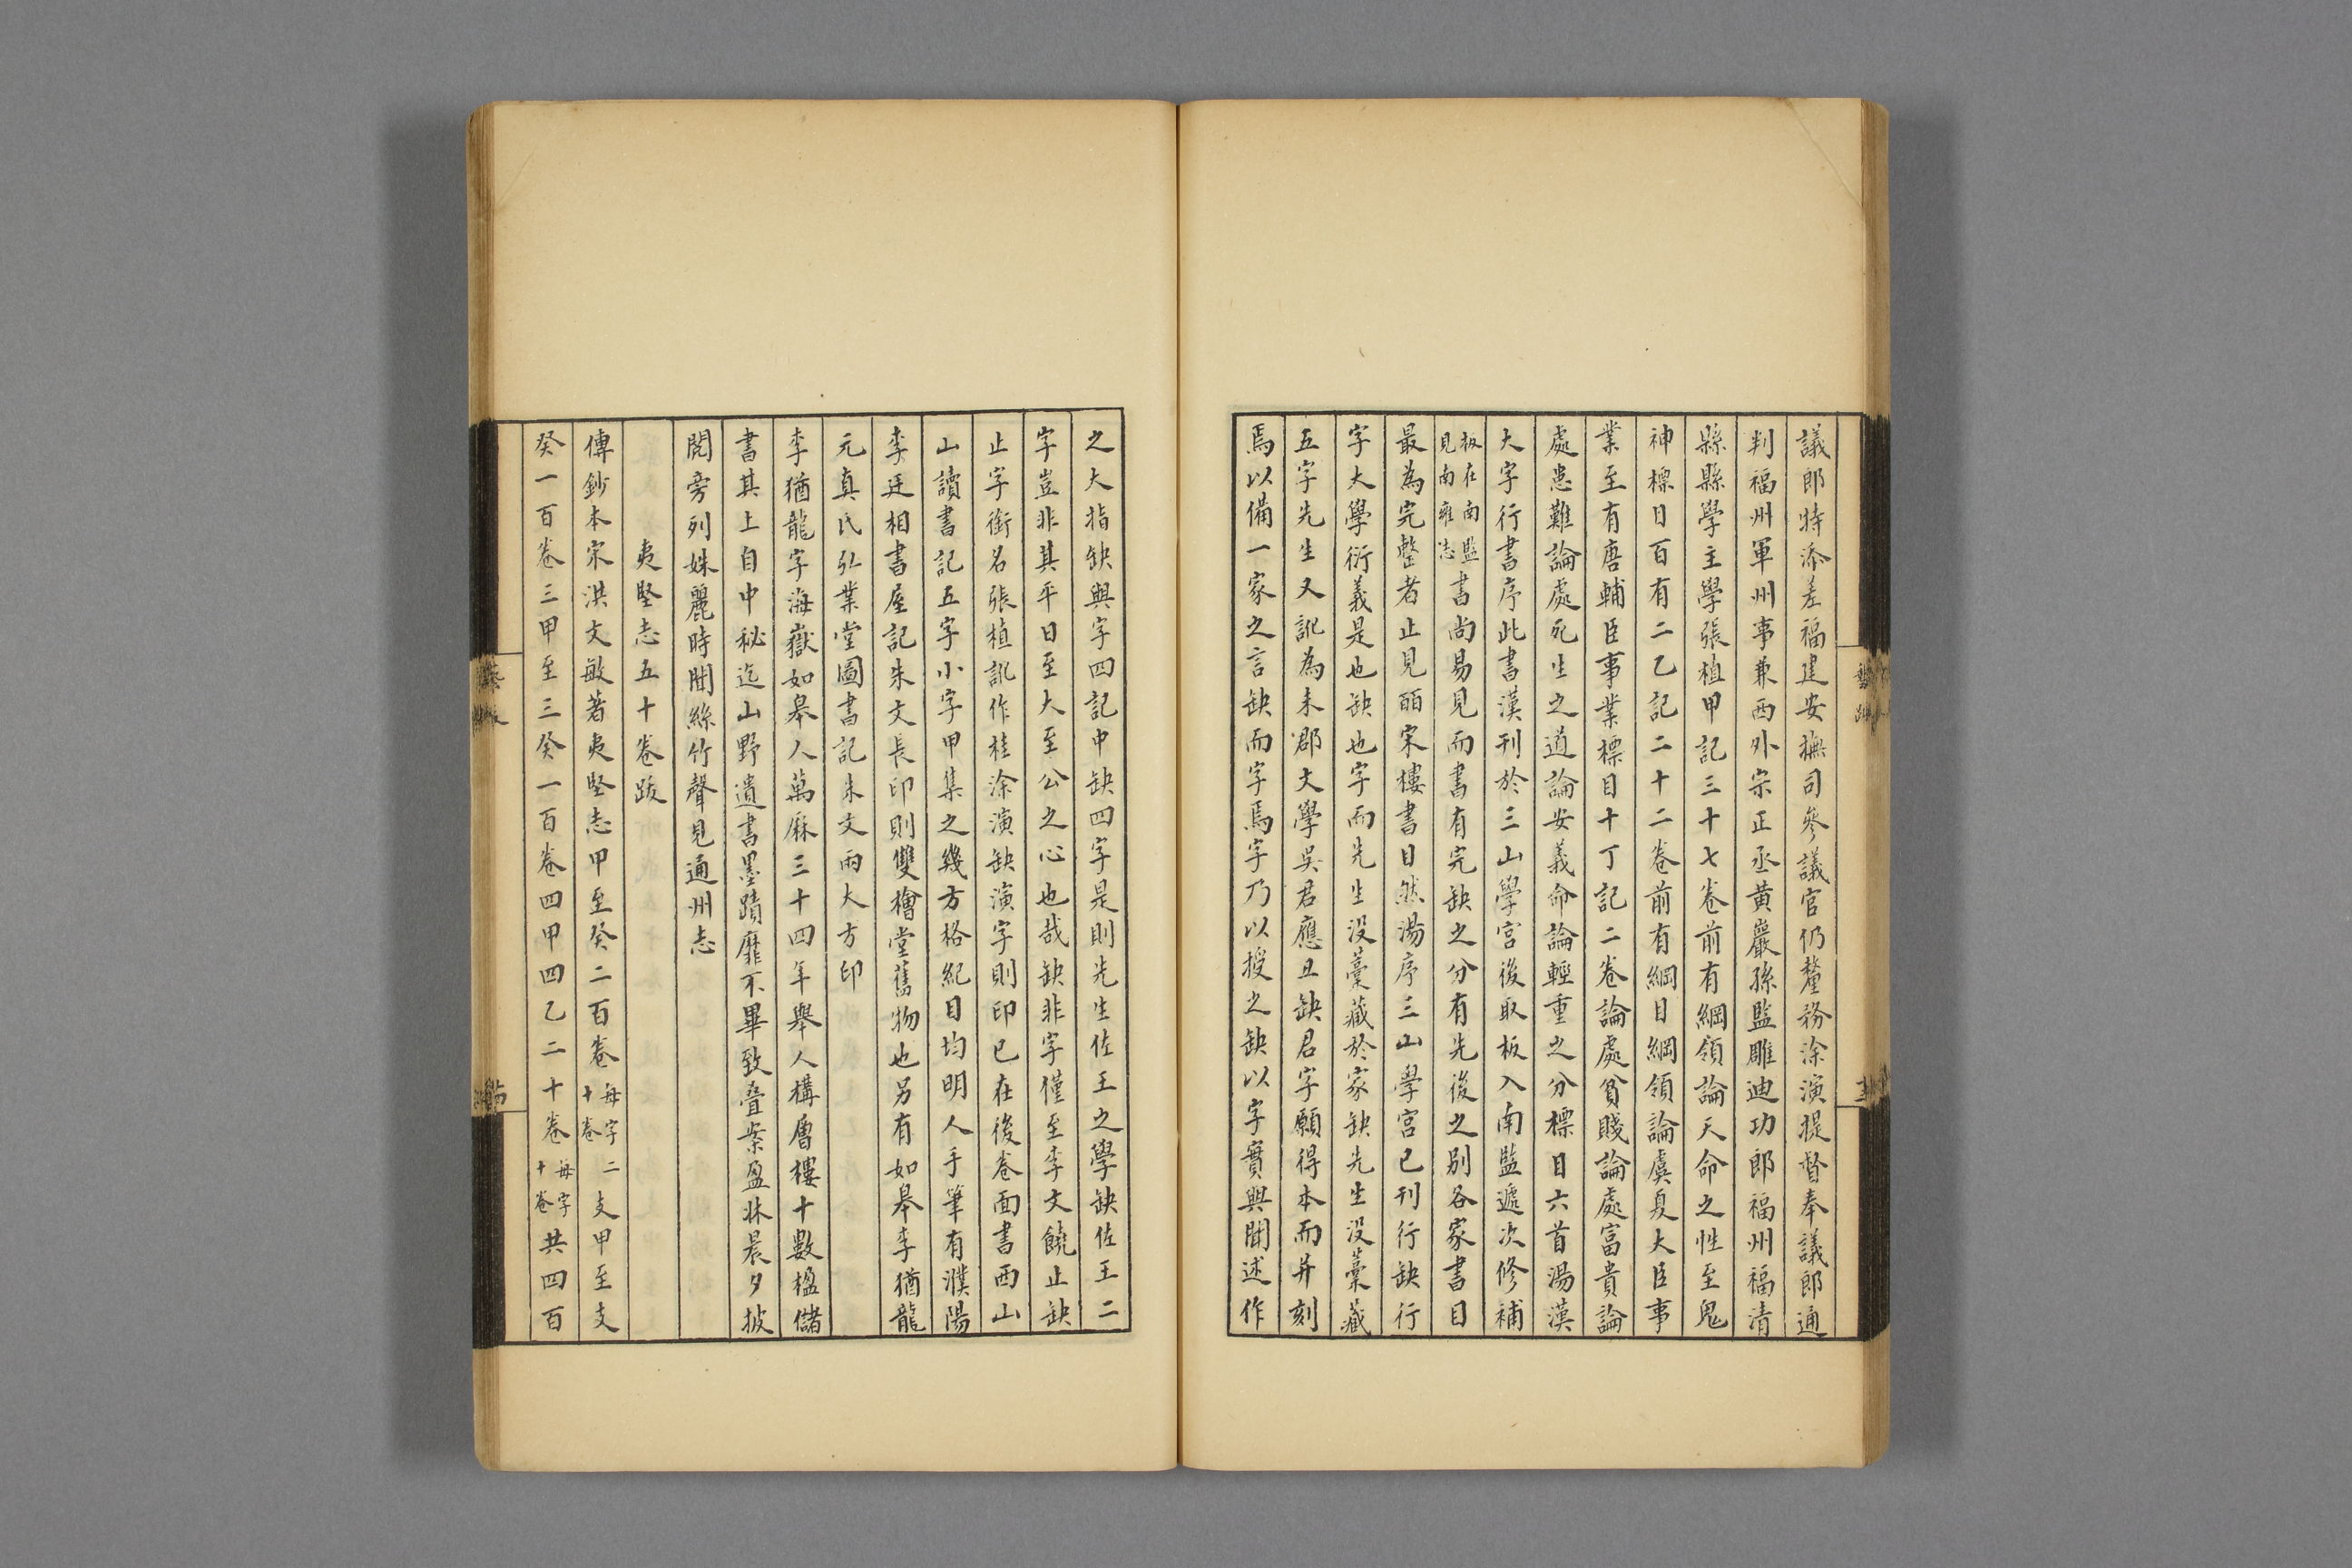 議郎特添差福建安撫司參議官仍釐務涂演提督奉議郎通
判福州軍州事兼西外宗正丞黃巖孫監雕迪功郎福州福清
縣縣學主學張植甲記三十七卷前有綱領論天命之性至鬼
神標目百有二乙記二十二卷前有綱目綱領論虞夏大臣事
業至有唐輔臣事業標目十丁記二卷論處貧賤論處富貴論
處患難論處死生之道論安義命論輕重之分標目六首湯漢
大字行書序此書漢刊於三山學宮後取板入南監遞次修補
板在南監見南雍志書尚易見而書有完缺之分有先後之別各家書目
最為完整者止見皕宋樓書目然湯序三山學宮已刊行缺行
字大學衍義是也缺也字而先生沒藁藏於家缺先生沒藁藏
五字先生又訛為未郡文學吳君應丑缺君字願得本而并刻
焉以備一家之言缺而字焉字乃以授之缺以字實與聞述作
之大指缺與字四記中缺四字是則先生佐王之學缺佐王二
字豈非其平日至大至公之心也哉缺非字僅至李文饒止缺
止字銜名張植訛作桂涂演缺演字則印已在後卷面書西山
山讀書記五字小字甲集之幾方格紀目均明人手筆有濮陽
李廷相書屋記朱文長印則雙檜堂舊物也另有如皋李猶龍
元真氏弘業堂圖書記朱文兩大方印
李猶龍字海嶽如皋人萬厤三十四年舉人構層樓十數楹儲
書其上自中秘迄山野遺書墨蹟靡不畢致叠案盈牀晨夕披
閱旁列姝麗時聞絲竹聲見通州志
夷堅志五十卷跋
傳鈔本宋洪文敏著夷堅志甲至癸二百卷每字二十卷支甲至支
癸一百卷三甲至三癸一百卷四甲四乙二十卷每字十卷共四百